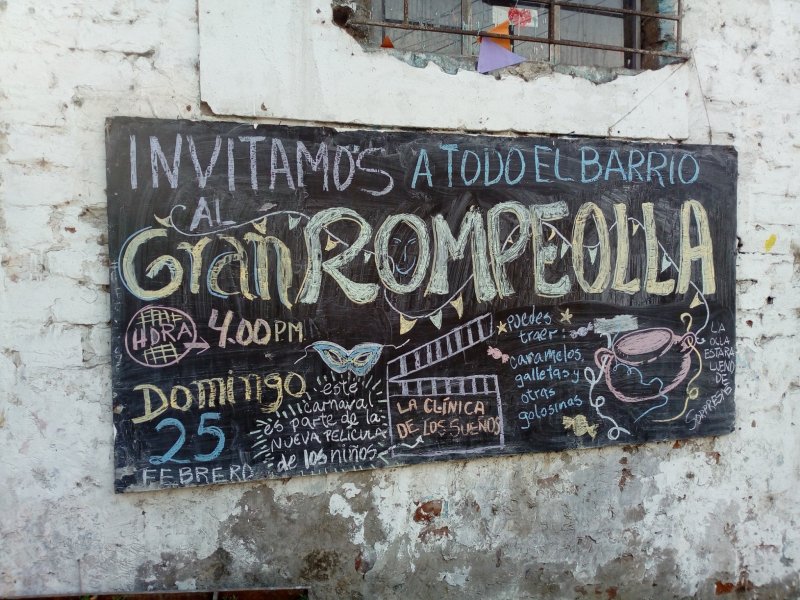 INVITAMOS A TODO EL BARRIO
AL
Gran ROMPEOLLA
HORA 4.00 P.M.
DOMINGO
25
FEBRERO
este
carnaval
es parte de la
NUEVA PELICULA
de los niños
LA CLÍNICA
DE LOS SUEÑOS
Puedes
traer:
caramelos,
galletas y
otras
golosinas
LA
OLLA
ESTARÁ
LLENO
DE
SORPRESAS